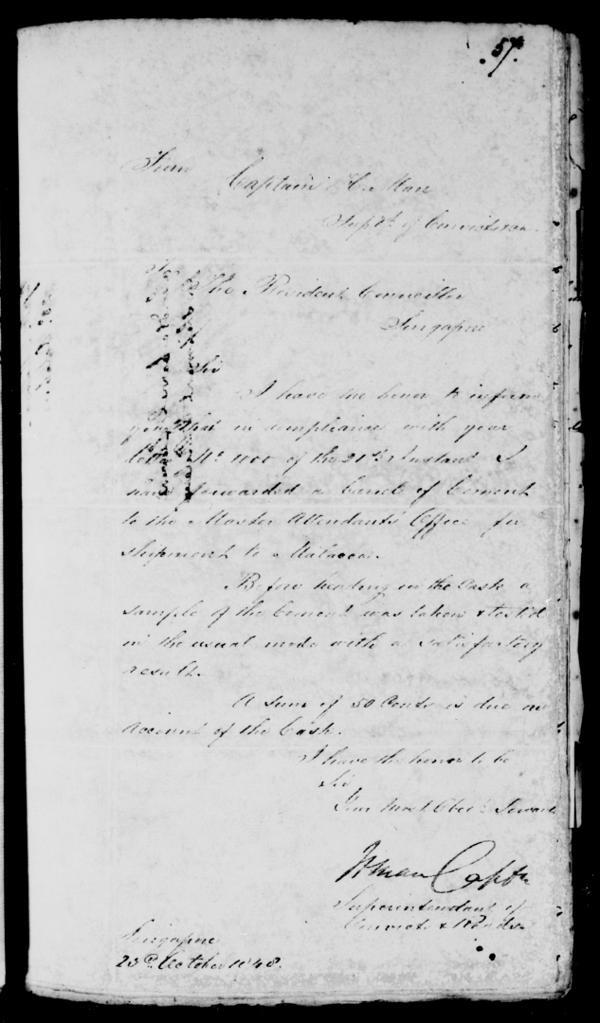 57.
From
Captain H. Man
Supdt. of Convicts
To
The Resident Councillor
Singapore
Sir
I have the honor to inform
you that in compliance with your
letter No. of the 21st Instant I
have forwarded a barrel of Cement
to the Master Attendants Office for
shipment to Malacca.
Before heading in the Cask a
sample of the Cement was taken & test'd
in the usual mode with a satisfactory
result.
A sum of 50 Cents is due on
account of the Cask.
I have the honor to be
Sir
Your Most Obedt. Servant
H Man Captn
Superintendent of
Convicts & Roads.
Singapore
23d. October 1848.